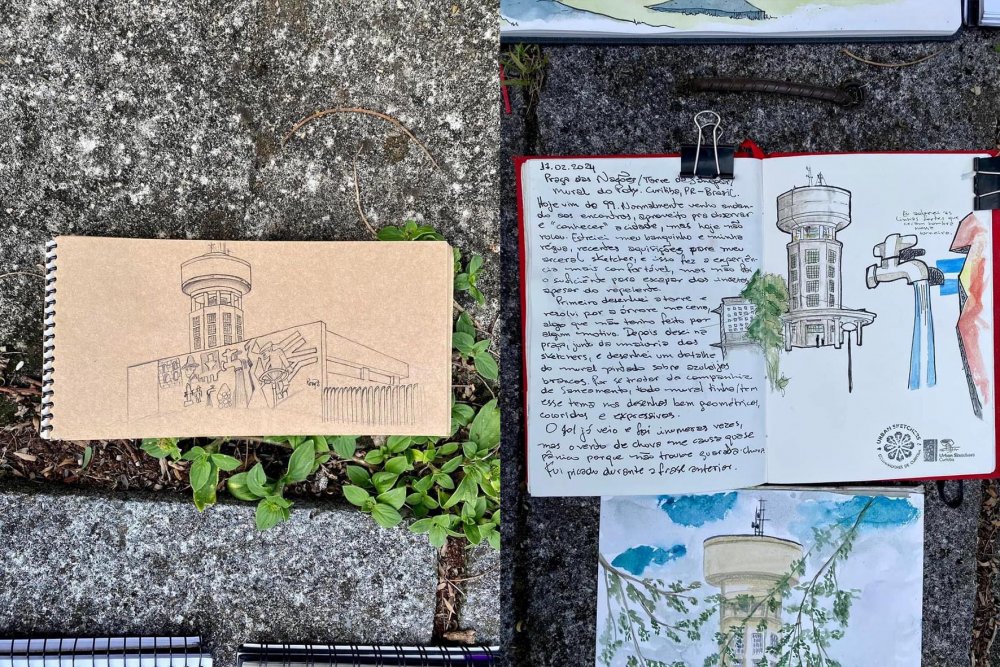 17.02.2024
Praça das Nações/Torre da
mural do Poty. Curitiba, PR-Brasil.
Hoje vim de 99. Normalmente venho andan-
do aos encontros, aproveito pra observar
e "conhecer" a cidade, mas hoje não
rolou. Estreei meu banquinho e minha
régua, recentes aquisições para meu
arsenal sketcher, e isso fez a experiên-
cia mais confortável, mas não foi
o suficiente para escapar dos insetos,
apesar do repelente.
Primeiro desenhei a torre e
resolvi por a árvore na cena,
algo que não tenho feito por
algum motivo. Depois desci na
praça, junto da maioria dos
sketchers, e desenhei um detalhe
do mural pintado sobre azulejos
brancos. Por se tratar da companhia
de Saneamento, todo mural tinha/tem
esse tema nos desenhos bem geométricos,
coloridos e expressivos.
O sol já veio e foi inúmeras vezes,
mas o vento de chuva me causa quase
pânico porque não trouxe guarda-chuva.
Fui picado durante a frase anterior.
linhas fortes que
URBAN SKETCHERS
Urban Sketchers
Curitiba